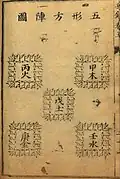 五形方陣圖
甲木
丙火
戊土
壬水
庚金